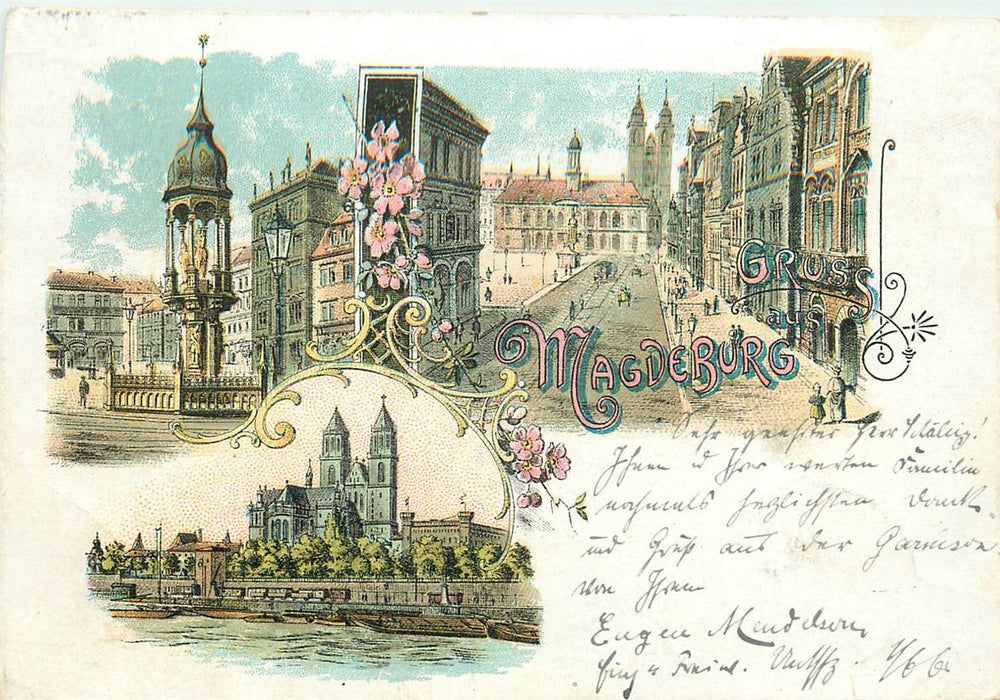 GRUSS
aus
MAGDEBURG
Sehr geehrter Herr
Ihnen u Ihrer werten Familie
nochmals herzlichsten Dank
und Gruß aus der Garnison
von Ihrem
Eugen Mendelson
Einj = Freiw. Untffz.